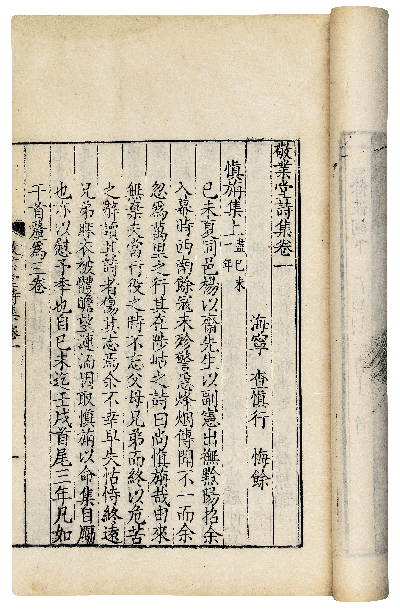 敬業堂詩集卷一
海寧 查慎行 悔餘
慎旃集上 盡己未一年
己未夏同邑楊以齋先生以副憲出撫黔陽招余
入幕時西南餘寇未殄警急烽烟傳聞不一而余
忽爲萬里之行其在陟岵之詩曰尚慎旃哉由來
無棄夫當行役之時不忘父母兄弟而終以危苦
之辭讀其詩者傷其志焉余不幸早失怙恃終遠
兄弟踪衣被體瞻望漣洏因取慎旃以命集自勵
也亦以慰予季也自己未迄壬戌首尾三年凡如
干首釐爲三卷
敬業堂詩集卷一
一